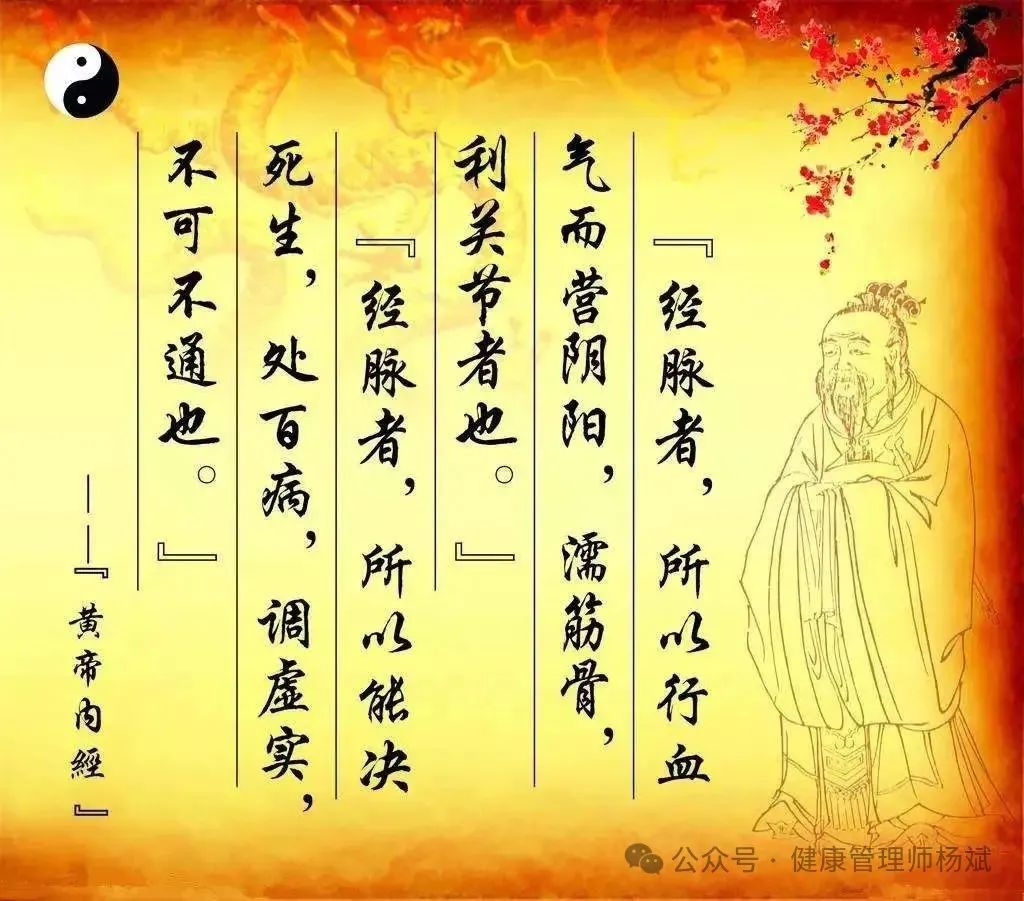 『经脉者，所以行血
气而营阴阳，濡筋骨，
利关节者也。』
『经脉者，所以能决
死生，处百病，调虚实，
不可不通也。』
——『黄帝内經』
公众号·健康管理师杨斌